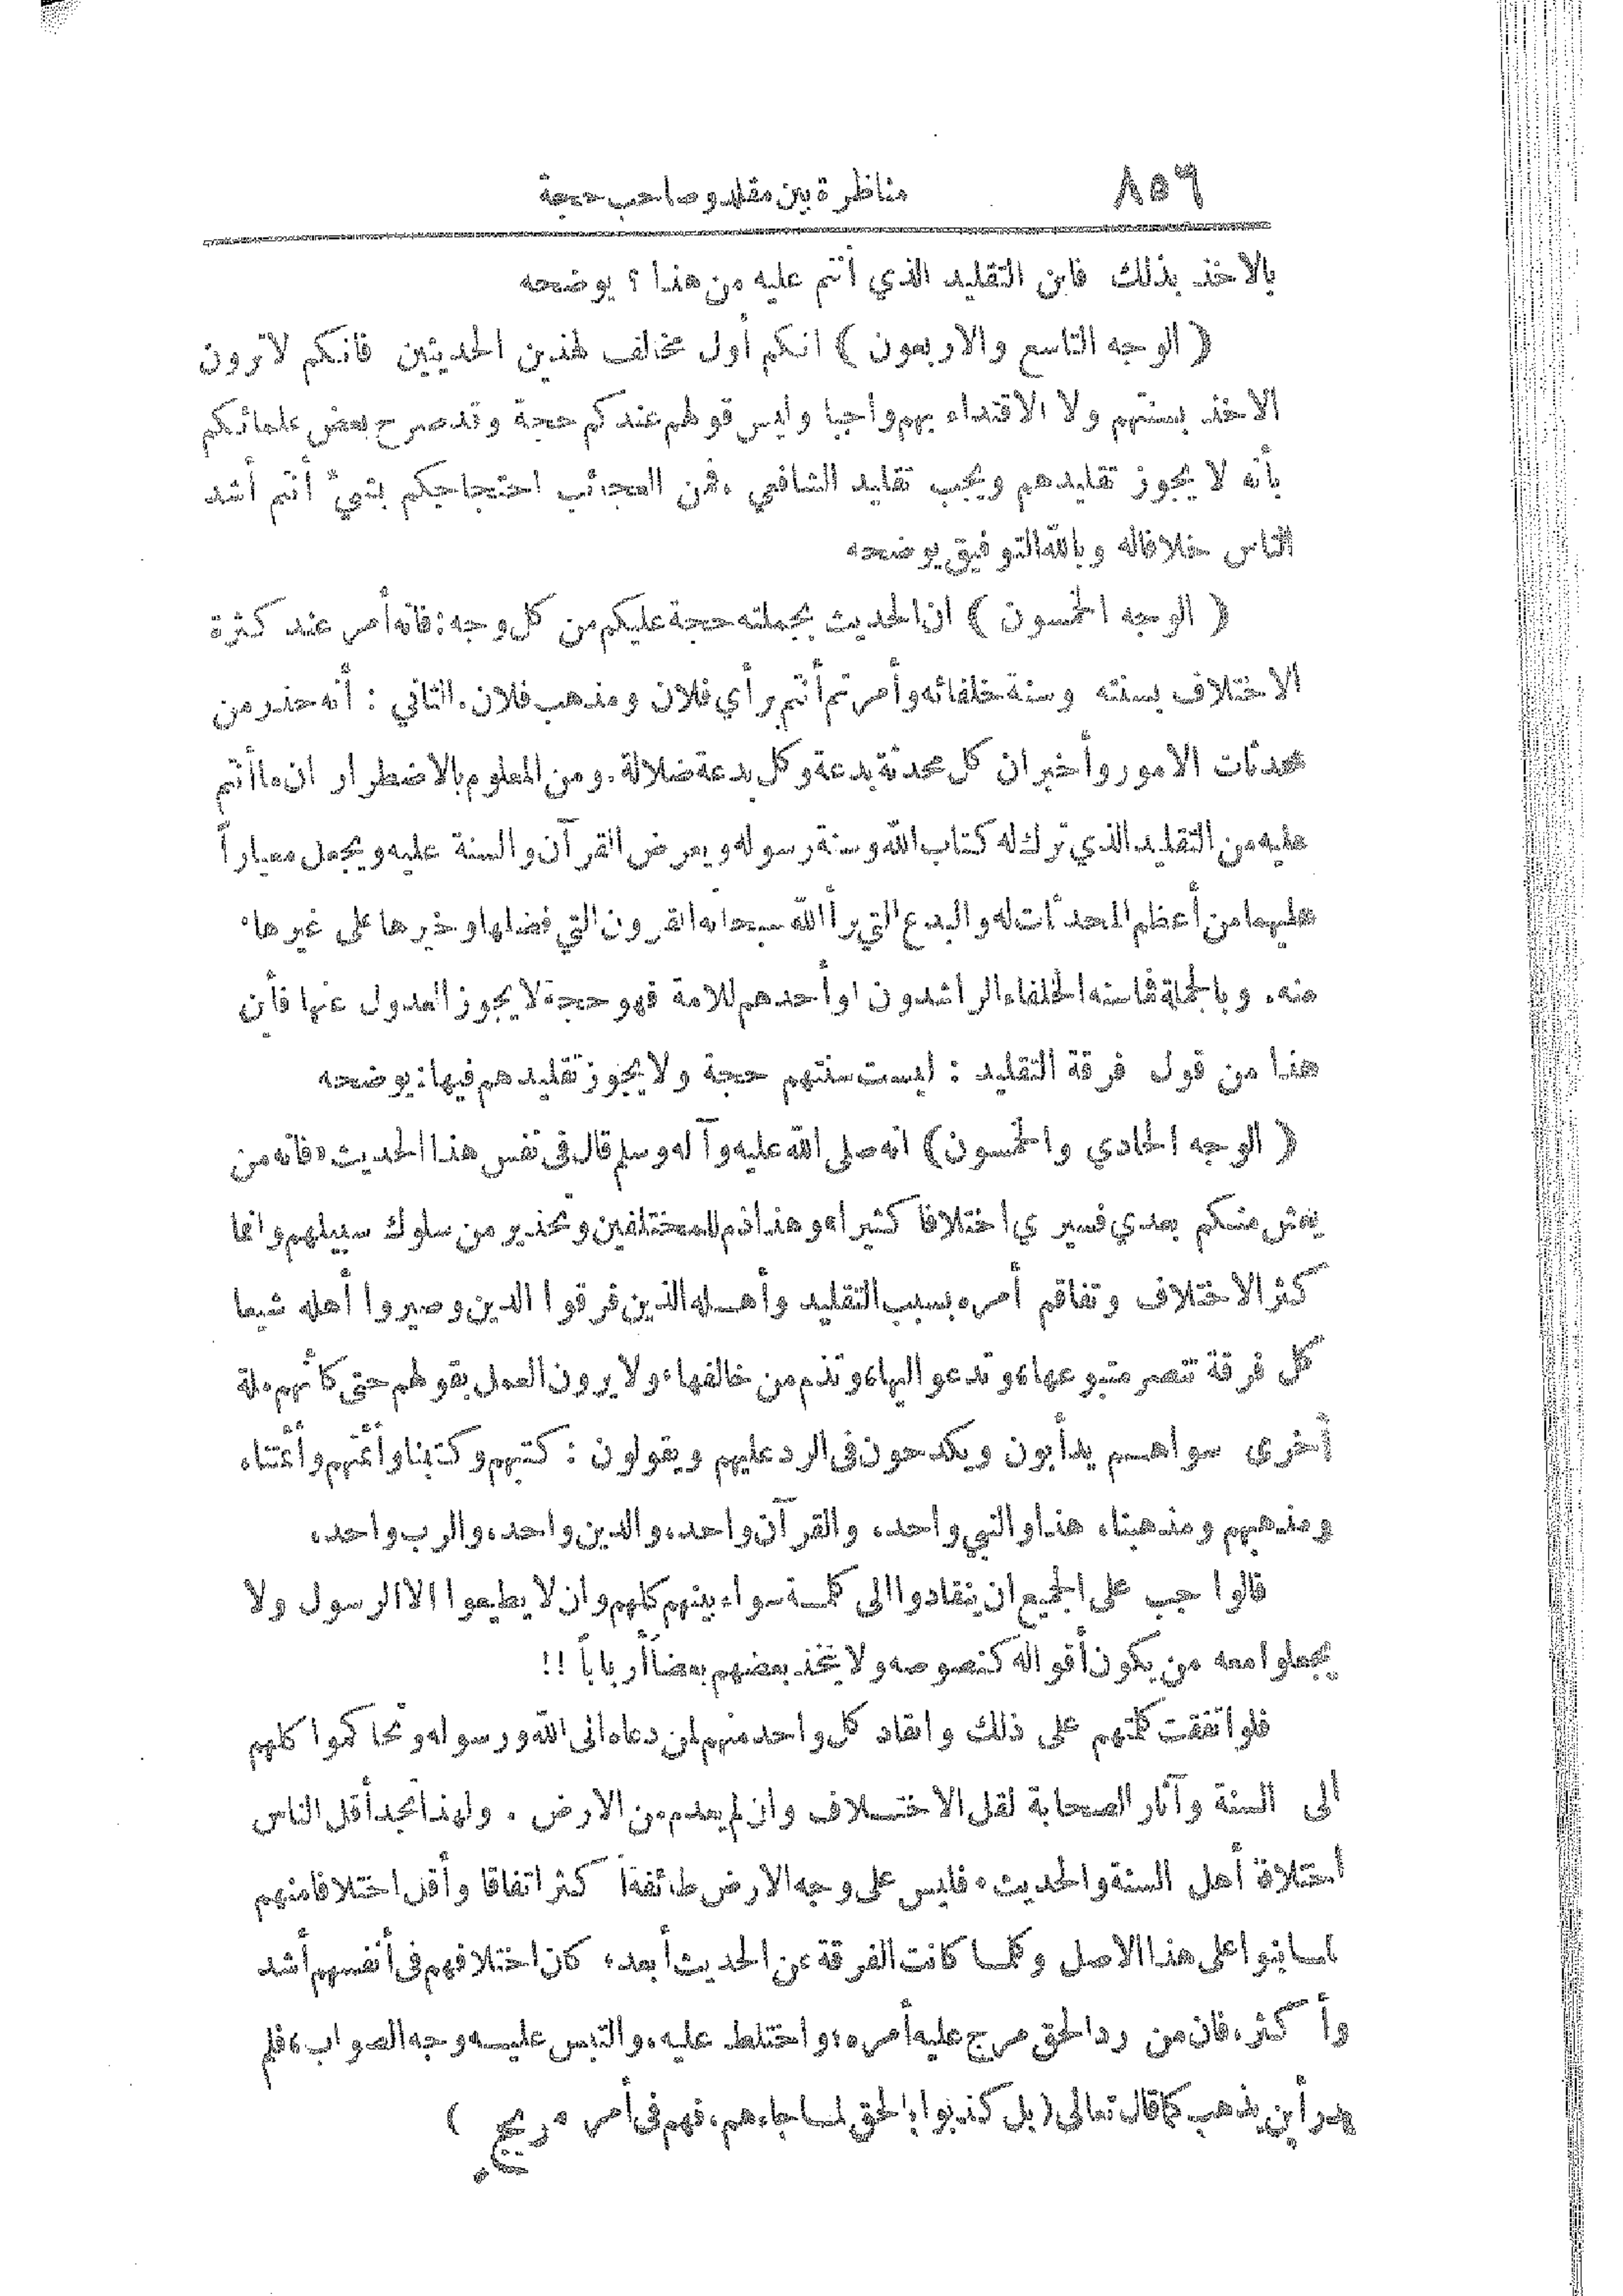 ٨٥٦ مناظرة بين مقلد وصاحب حجة
بالاخذ بذلك فاين التقليد الذي أنتم عليه من هذا ؟ يوضحه
( الوجه التاسع والاربعون ) انكم أول مخالف لهذين الحديثين فانكم لا ترون
الاخذ بسنتهم ولا الاقتداء بهم واجبا وليس قولهم عندكم حجة وقد صرح بعض علمائكم
بأنه لا يجوز تقليدهم ويجب تقليد الشافعي ، فمن العجائب احتجاجكم بشيءٍ أنتم أشد
الناس خلافا له وبالله التوفيق يوضحه
( الوجه الخمسون ) ان الحديث بجملته حجة عليكم من كل وجه : فانه أمر عند كثرة
الاختلاف بسنته وسنة خلفائه وأمرتم أنتم برأي فلان ومذهب فلان . الثاني : أنه حذر من
محدثات الامور وأخبر ان كل محدثة بدعة وكل بدعة ضلالة . ومن المعلوم بالاضطرار ان ما أنتم
عليه من التقليد الذي ترك له كتاب الله وسنة رسوله ويعرض القرآن والسنة عليه ويجعل معياراً
عليهما من أعظم المحدثات له والبدع التي برأ الله سبحانه القرون التي فضلها وخيرها على غيرها
منه . وبالجملة فما سنه الخلفاء الراشدون او أحدهم للامة فهو حجة لا يجوز العدول عنها فأين
هذا من قول فرقة التقليد : ليست سنتهم حجة ولا يجوز تقليدهم فيها : يوضحه
( الوجه الحادي والخمسون ) انه صلى الله عليه وآله وسلم قال في نفس هذا الحديث « فانه من
يعش منكم بعدي فسيرى اختلافا كثيرا » وهذا ذم للمختلفين وتحذير من سلوك سبيلهم وانما
كثر الاختلاف وتفاقم أمره بسبب التقليد وأهـله الذين فرقوا الدين وصيروا أهله شيعا
كل فرقة تنصر متبوعها، وتدعو اليها، وتذم من خالفها، ولا يرون العمل بقولهم حتى كأنهم ملة
أخرى سواهـم يدأبون ويكدحون في الرد عليهم ويقولون : كتبهم وكتبنا وأئمتهم وأئمتنا،
ومذهبهم ومذهبنا، هذا والنبي واحد، والقرآن واحد، والدين واحد، والرب واحد،
فالواجب على الجميع ان ينقادوا الى كلمـة سواء بينهم كلهم وان لا يطيعوا الا الرسول ولا
يجعلوا معه من يكون أقواله كنصوصه ولا يتخذ بعضهم بعضاً أرباباً !!
فلو اتفقت كلمتهم على ذلك وانقاد كل واحد منهم لمن دعاه الى الله ورسوله وتحاكموا كلهم
الى السنة وآثار الصحابة لقل الاختـلاف وان لم يعدم من الارض . ولهذا تجد أقل الناس
اختلافا أهل السنة والحديث، فليس على وجه الارض طائفة أكثر اتفاقا وأقل اختلافا منهم
لمـا بنوا على هذا الاصل وكلمـا كانت الفرقة عن الحديث أبعد، كان اختلافهم في أنفسهم أشد
وأكثر، فان من رد الحق مرج عليه أمره، واختلط عليه، والتبس عليـه وجه الصواب، فلم
يدر أين يذهب كما قال تعالى ( بل كذبوا بالحق لمـا جاءهم، فهم في أمر مريج )